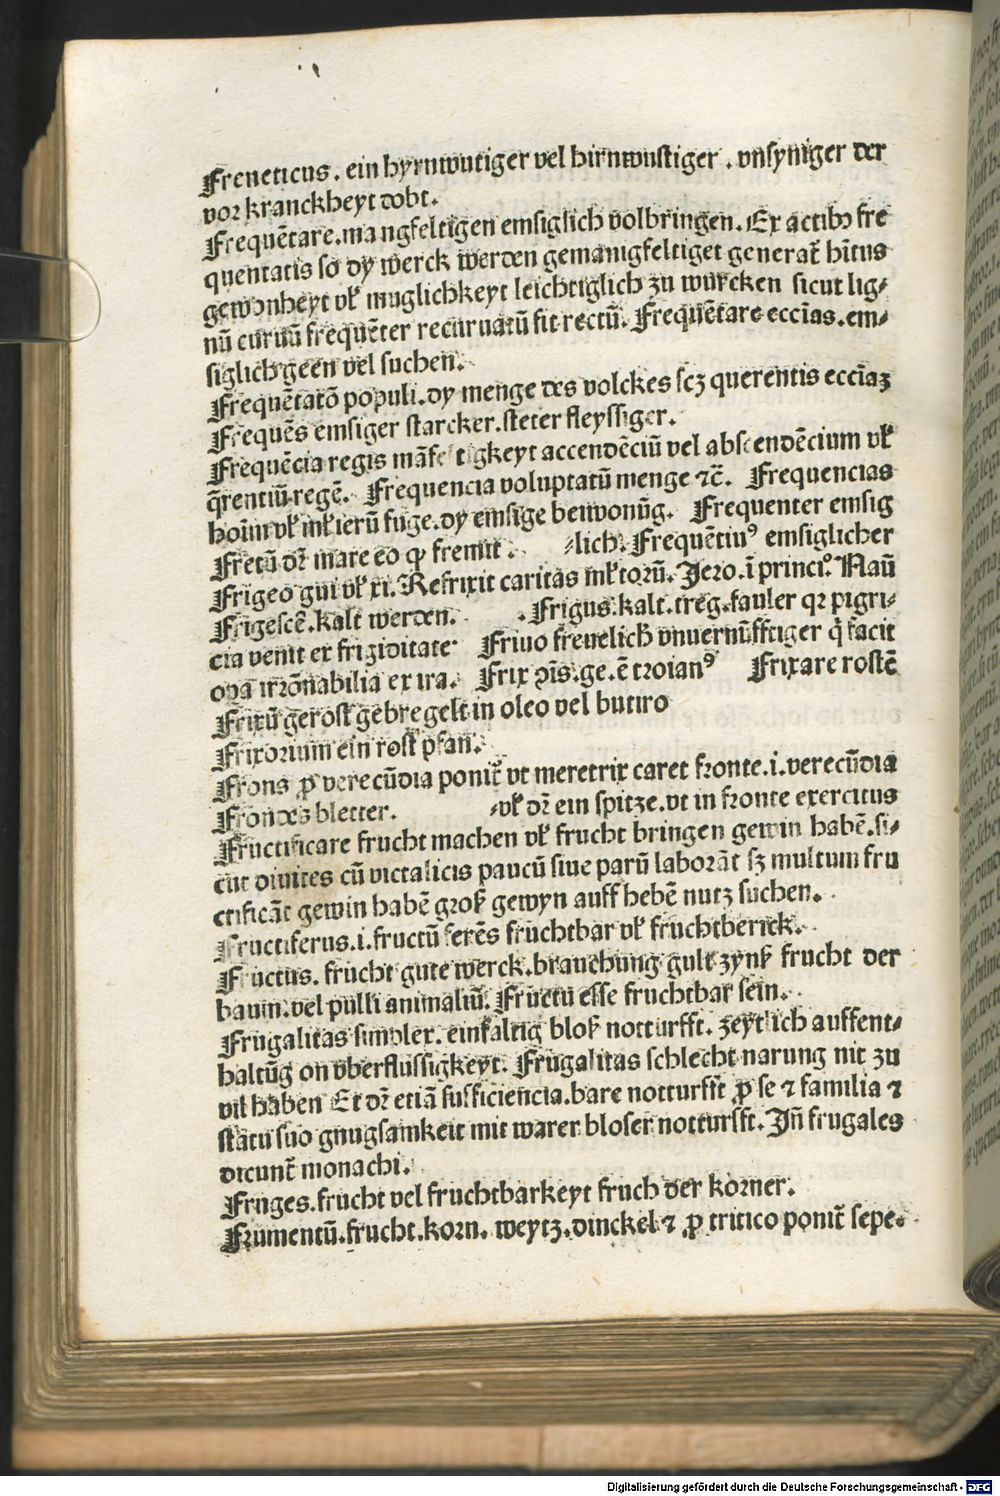 Freneticus. ein hyrnwutiger vel hirnwustiger. vnsyniger der
vor kranckheyt tobt.
Frequētare. mangfeltigen emsiglich volbringen. Ex actibꝫ fre
quentatis so dy werck werden gemanigfeltiget generat̄ hītus
gewonheyt vl̓ muglichkeyt leichtiglich zu wurcken sicut lig⸗
nū curuū frequēter recuruatū fit rectū. Frequētare ecciās. em⸗
siglich geen vel suchen.
Frequētatō populi. dy menge des volckes scꝫ querentis ecciāꝫ
Frequēs emsiger starcker. steter fleyssiger.
Frequēcia regis māfeltigkeyt accendēciū vel abscendēcium vl̓
q̄rentiū regē. Frequencia voluptatū menge ⁊c̄. Frequencias
hoīm vl̓ ml̓ierū fuge. dy emsige beiwonūg. Frequenter emsig
Fretū dr̄ mare eo ꝙ fremit. ⸗lich. Frequētiuꝰ emsiglicher
Frigeo gui vl̓ xi. Refrixit caritas ml̓torū. Jero. ī princi. Naū
Frigescē. kalt werden. . Frigus. kalt. treg. fauler qꝛ pigri⸗
cia venit ex frigiditate Friuo freuelich vnuernūfftiger q̇ facit
opa irrōnabilia ex ira. Frix ꝓīs. ge. ē troianꝰ Frixare rostē
Frixū gerost gebregelt in oleo vel butiro
Frixorium ein rost pfan.
Frons ꝓ verecūdia ponit̄ vt meretrix caret fronte. i. verecūdia
Frondes bletter. ⸗vl̓ dr̄ ein spitze. vt in fronte exercitus
Fructificare frucht machen vl̓ frucht bringen gewin habē. si⸗
cut diuites cū victalicis paucū siue parū laborāt sꝫ multum fru
ctificāt gewin habē groß gewyn auff hebē nutz suchen.
Fructiferus. i. fructū ferēs fruchtbar vl̓ fruchtberick.
Fructus. frucht gute werck. brauchung gult zynß frucht der
baum. vel pulli animaliū. Fructu esse fruchtbar sein.
Frugalitas simplex. einfaltig bloß notturfft. zeytlich auffent⸗
haltūg on vberflussigkeyt. Frugalitas schlecht narung nit zu
vil haben Et dr̄ etiā sufficiencia. bare notturfft ꝓ se ⁊ familia ⁊
statu suo gnugsamkeit mit warer bloser notturfft. Jn̄ frugales
dicunt̄ monachi.
Fruges. frucht vel fruchtbarkeyt fruch der korner.
Frumentū. frucht. korn. weytz. dinckel ⁊ ꝓ tritico ponit̄ sepe.
Digitalisierung gefördert durch die Deutsche Forschungsgemeinschaft - DFG